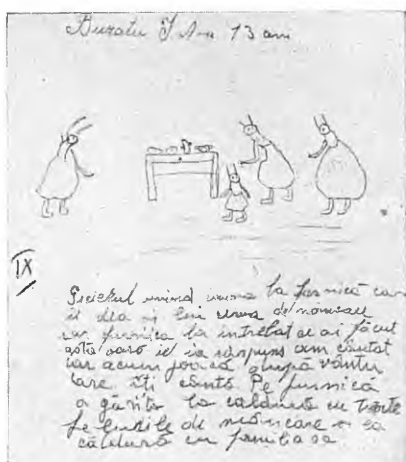 Buzatu I Ion 13 ani
IX
Greierul viind la furnică ca
îi dea și lui ceva de mâncare
iar furnica la intrebat ce ai făcut
astă vară iel ia răspuns am căutat
iar acum joacă după vântu
care îți cântă Pe furnică
a găsito la căldură cu toate
felurile de mâncare și la
căldură cu familia sa